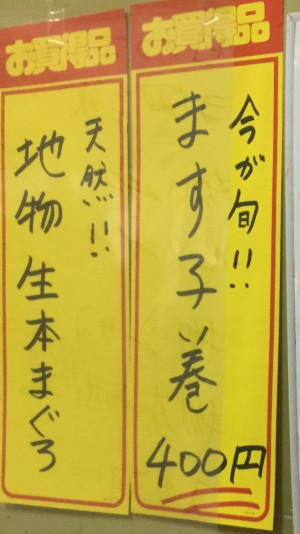 お買得品
今が旬!!
ます子巻
400円
お買得品
天然!!
地物 生本まぐろ